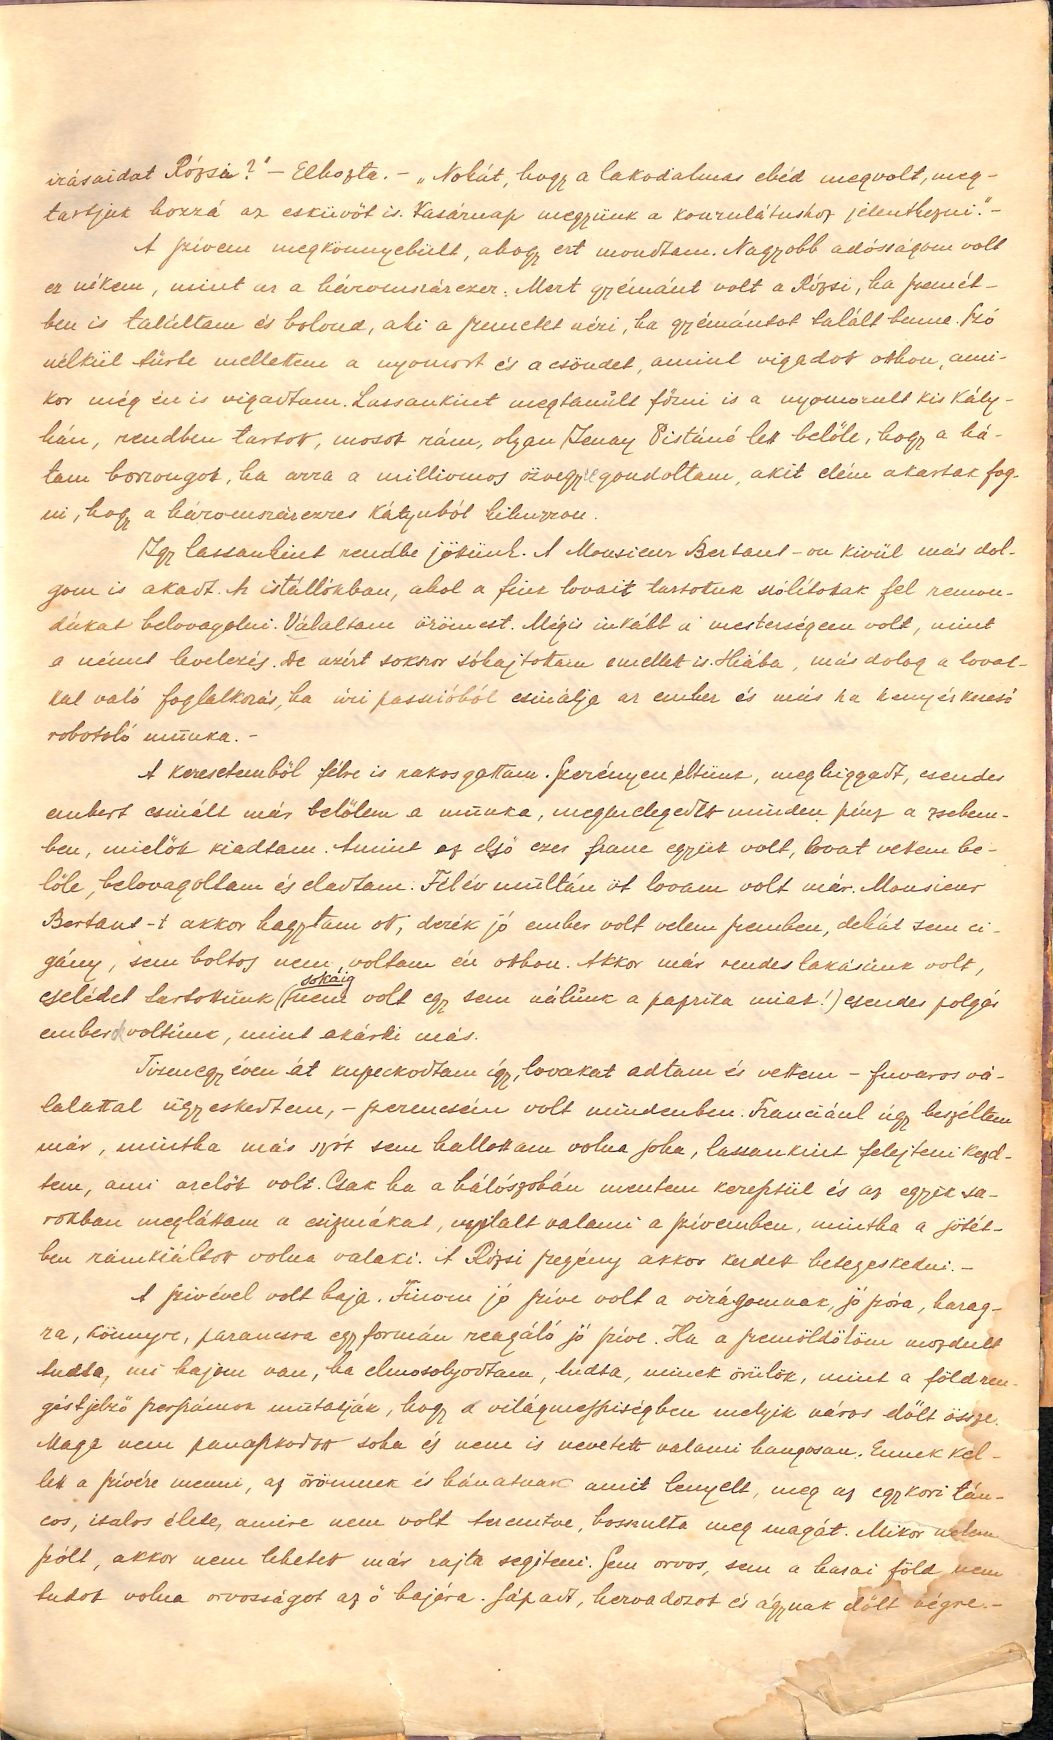 irásaidat Rózsi?" – Elhozta. – „Nohát, hogy a lakodalmas ebéd megvolt, meg-
tartjuk hozzá az esküvőt is. Vasárnap megyünk a konzulátushoz jelentkezni." –
A szivem megkönnyebült, ahogy ezt mondtam. Nagyobb adósságom volt
ez nékem, mint az a háromszázezer. Mert gyémánt volt a Rózsi, ha szemét-
ben is találtam és bolond, aki a szemetet nézi, ha gyémántot talált benne. Szó
nélkül türte mellettem a nyomort és a csöndet, amint vigadott otthon, ami-
kor még én is vigadtam. Lassankint megtanúlt főzni is a nyomorult kis kály-
hán, rendben tartott, mosott rám, olyan Jenay Pistáné lett belőle, hogy a há-
tam borzongott, ha arra a milliomos özvegyre gondoltam, akit elém akartak fog-
ni, hogy a háromszázezres kátyuból kihuzzon.
Igy lassankint rendbe jöttünk. A Monsieur Bertant-on kivül más dol-
gom is akadt. Az istállókban, ahol a fiuk lovait tartottuk szólítottak fel remon-
dákat belovagolni. Válaltam örömest. Mégis inkább úri mesterségem volt, mint
a német levelezés. De azért sokszor sóhajtottam emellett is. Hiába, más dolog a lovak-
kal való foglalkozás, ha úri passzióból csinálja az ember és más ha kenyérkereső
robotoló múnka. –
A keresetemből félre is rakosgattam. Szerényen éltünk, meghiggadt, csendes
embert csinált már belőlem a múnka, megmelegedett minden pénz a zsebem-
ben, mielőtt kiadtam. Amint az első ezer franc együtt volt, lovat vettem be-
lőle, belovagoltam és eladtam. Félév múltán öt lovam volt már. Monsieur
Bertant-t akkor hagytam ott, derék jó ember volt velem szemben, dehát sem ci-
gány, sem boltos nem voltam én otthon. Akkor már rendes lakásúnk volt,
cselédet tartottúnk (sokáig nem volt egy sem nálúnk a paprika miatt!) csendes polgár
ember voltúnk, mint akárki más.
Tizenegy éven át kupeckodtam így, lovakat adtam és vettem – fuvaros vá-
lalattal ügyeskedtem, – szerencsém volt mindenben. Franciáúl úgy beszéltem
már, mintha más szót sem hallottam volna soha, lassankint felejteni kezd-
tem, ami azelőtt volt. Csak ha a hálószobán mentem keresztül és az egyik sa-
rokban megláttam a csizmákat, nyilalt valami a szivemben, mintha a sötét-
ben rámkiáltott volna valaki. A Rózsi szegény akkor kezdett betegeskedni. –
A szivével volt baja. Finom jó szive volt a virágomnak, jó szóra, harag-
ra, könnyre, parancsra egyformán reagáló jó szive. Ha a szemöldököm mozdult
tudta, mi bajom van, ha elmosolyodtam, tudta, minek örülök, mint a földren-
géstjelző szerszámok mutatják, hogy a világmesszeségben melyik város dőlt össze.
Maga nem panaszkodott soha és nem is nevetett valami hangosan. Ennek kel-
lett a szivére menni, az örömnek és bánatnak amit lenyelt, meg az egykori tán-
cos, italos élete, amire nem volt teremtve, bosszulta meg magát. Mikor nekem
szólt, akkor nem lehetett már rajta segíteni. Sem orvos, sem a hazai föld nem
tudott volna orvosságot az ő bajára. Sápadt, hervadozott és ágynak dőlt végre. –